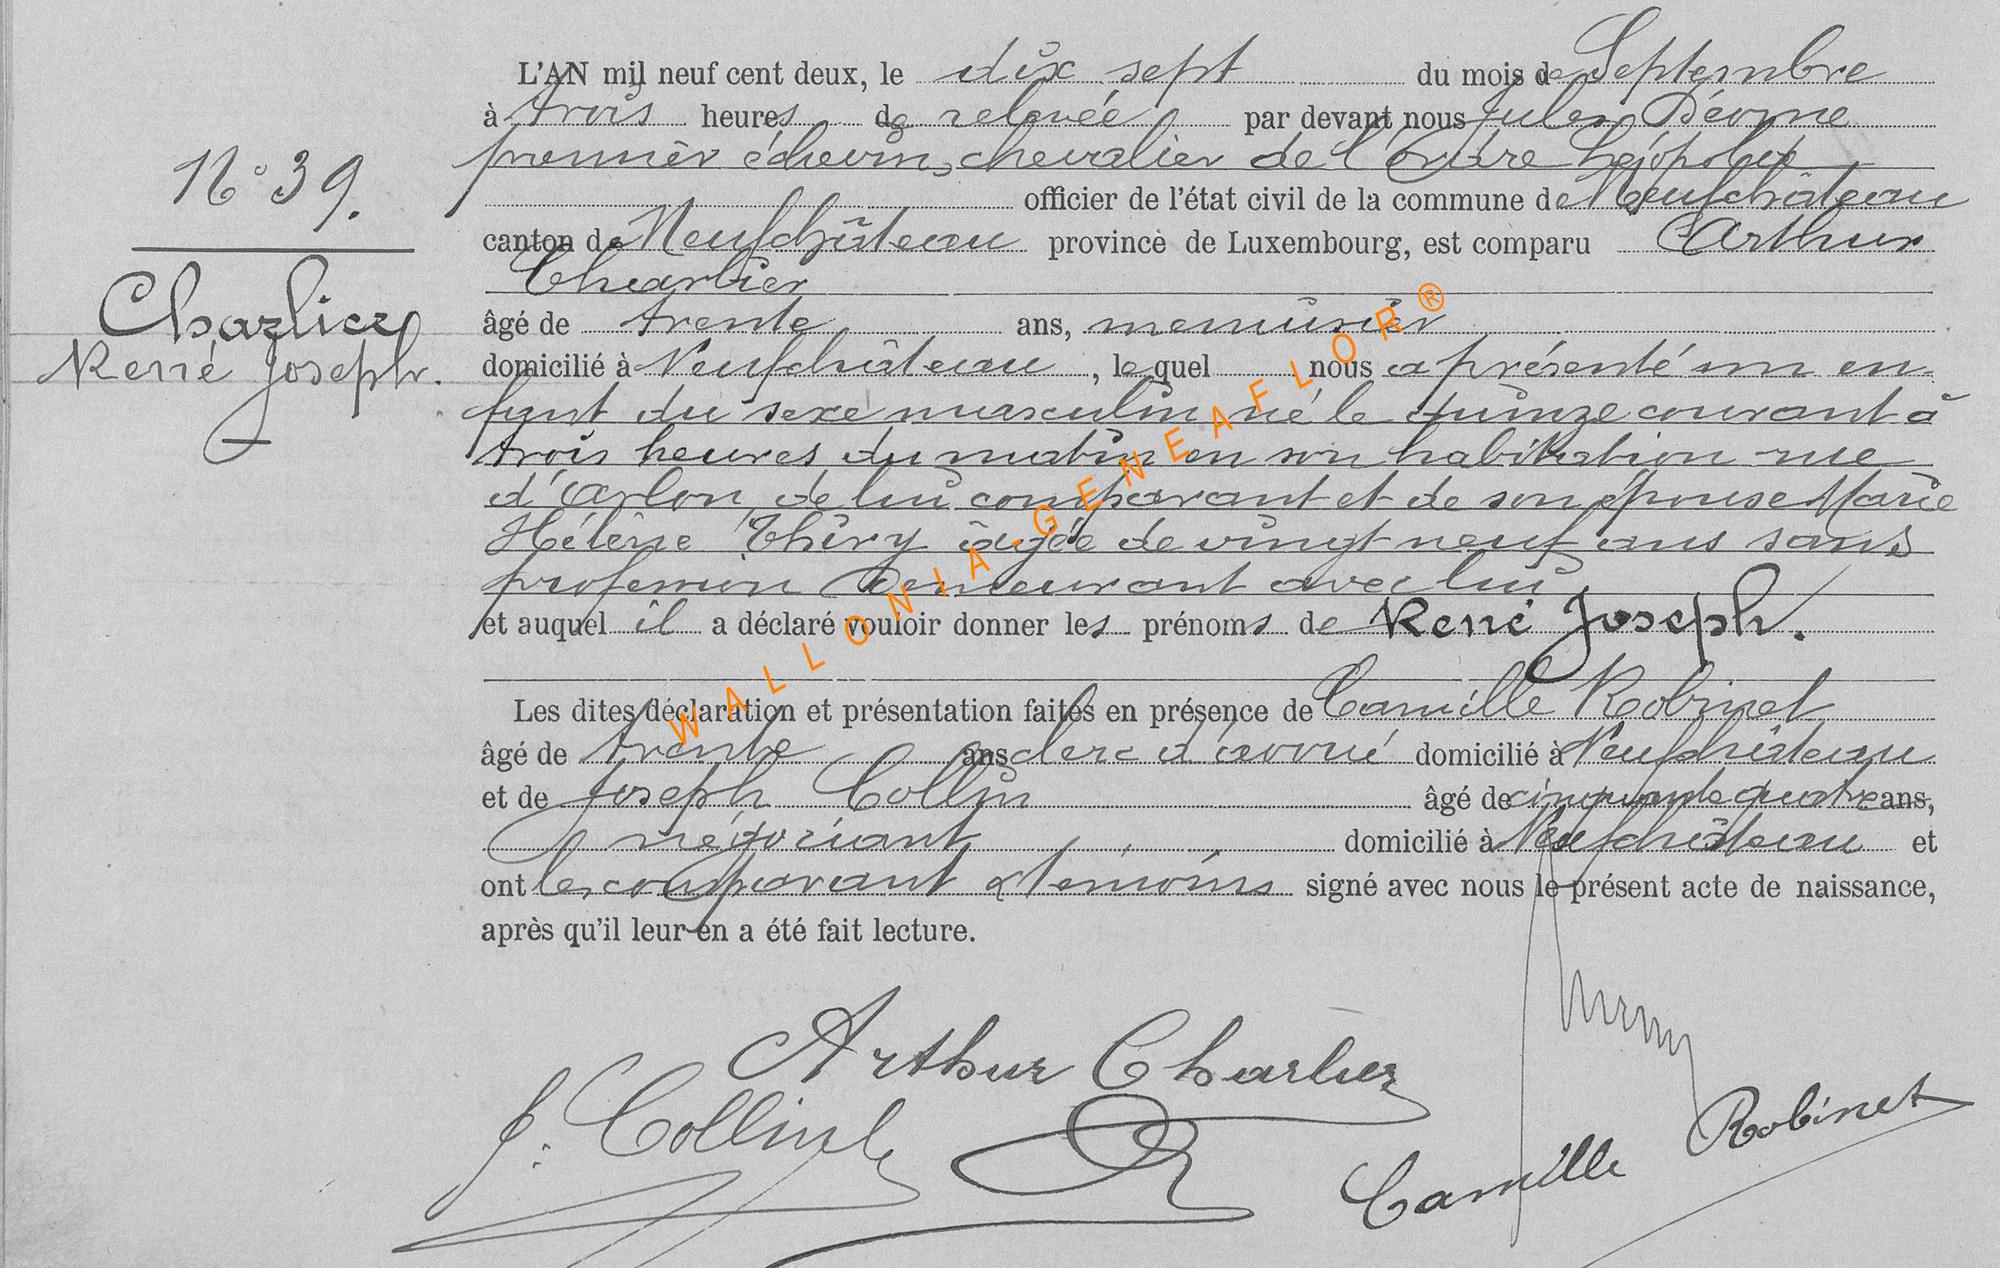 L'AN mil neuf cent deux, le dix sept du mois de Septembre
à trois heures de relevée par devant nous Jules
premier échevin, chevalier de l'Ordre Léopold
officier de l'état civil de la commune de Neufchâteau
canton de Neufchâteau province de Luxembourg, est comparu Arthur
Charlier
âgé de trente ans, menuisier
domicilié à Neufchâteau, lequel nous a présenté un en-
fant du sexe masculin né le quinze courant à
trois heures du matin en son habitation rue
d'Arlon, de lui comparant et de son épouse Marie
Hélène Thiry âgée de vingt neuf ans sans
profession demeurant avec lui
et auquel il a déclaré vouloir donner les prénoms de René Joseph.
Les dites déclaration et présentation faites en présence de Camille Robinet
âgé de trente ans clerc d'avoué domicilié à Neufchâteau
et de Joseph Collin âgé de cinquante quatre ans,
négociant domicilié à Neufchâteau et
ont les comparant & témoins signé avec nous le présent acte de naissance,
après qu'il leur en a été fait lecture.
N° 39.
Charlier
René Joseph.
Arthur Charlier
J. Collin
Camille Robinet
WALLONIA-GENEAFLOR®